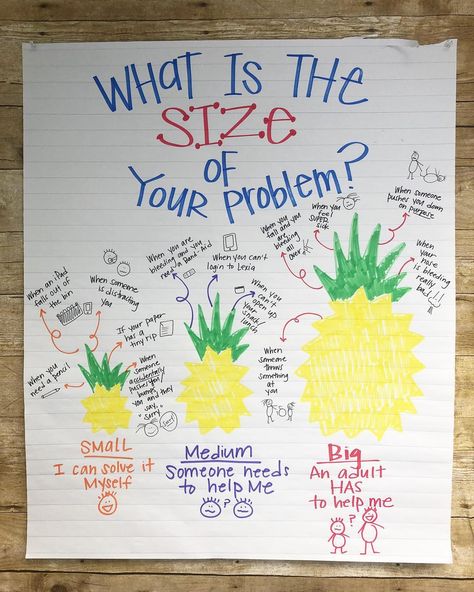 What Is The
SIZE
of
Your Problem?
When an iPad
falls out of
the bin
When someone
is distracting
you
When you
need a pencil
If your paper
has a
tiny rip
When
someone
accidentally
pushes you/
bumps
you and they
say,
"Sorry"
When you are
bleeding and you
need a Band Aid
When you can't
login to Lexia
When you
can't
open up
your
snack/
lunch
When you
fall and you
are
bleeding
all
over
When you
feel
SUPER
sick
When someone
pushes you down
on purpose
When
your
nose is
bleeding
really
bad!!!
When
someone
throws
something
at
you
SMALL
I can solve it
Myself
Medium
Someone needs
to help Me
?
Big
An adult
HAS
to help me
?